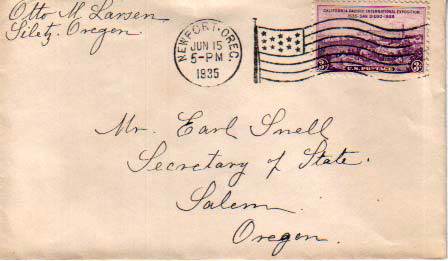 Otto M. Larsen
Siletz. Oregon.
NEWPORT. OREG.
JUN 15
5-PM
1935
CALIFORNIA PACIFIC INTERNATIONAL EXPOSITION
1935-SAN DIEGO-1936
3¢ U.S. POSTAGE 3¢
Mr. Earl Snell
Secretary of State.
Salem.
Oregon.